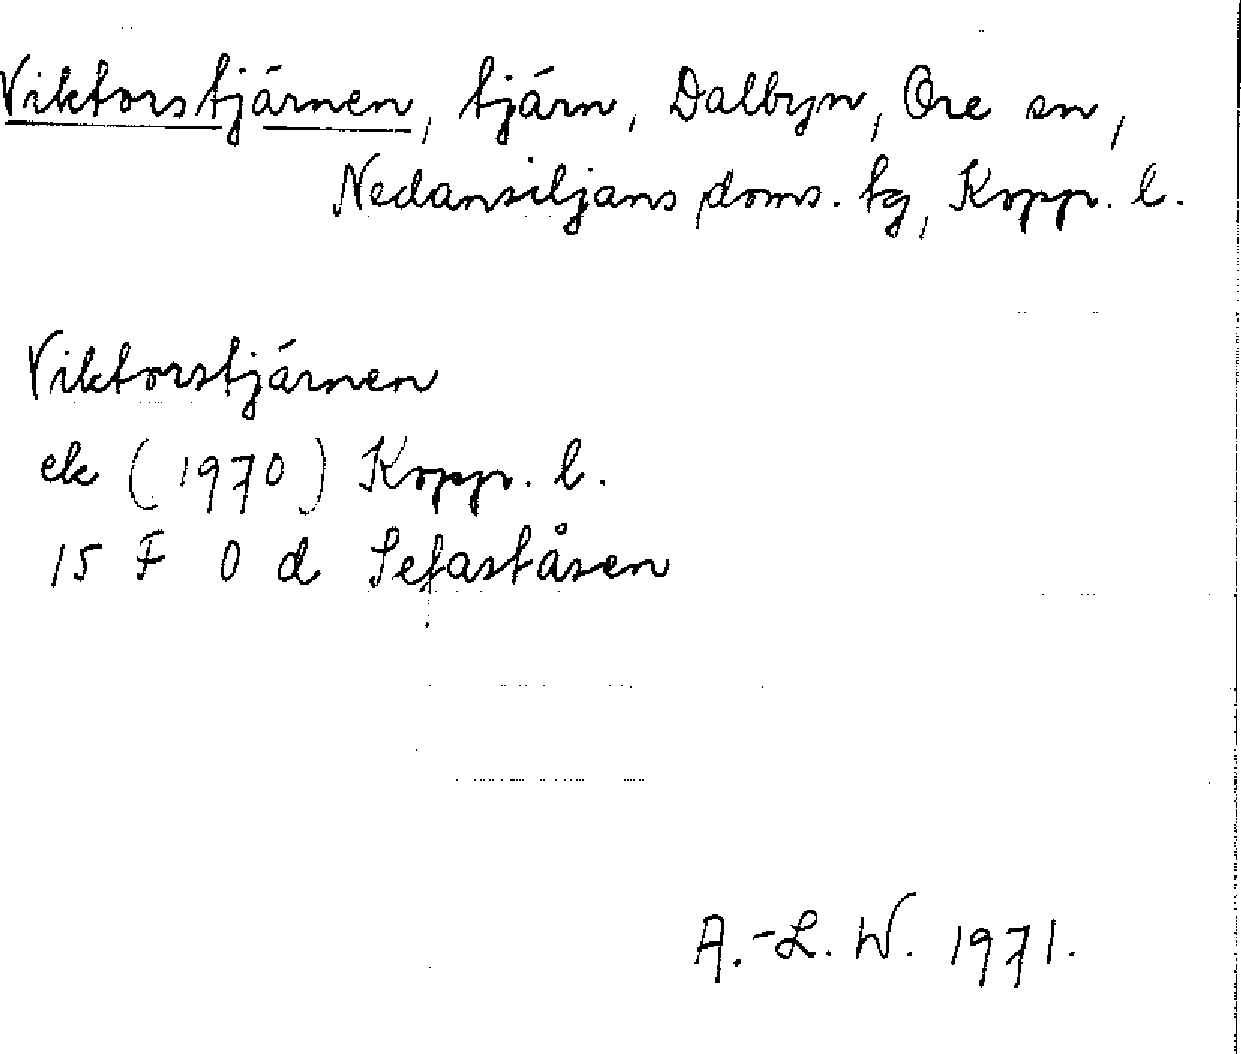 Viktorstjärnen, tjärn, Dalbyn, Ore sn,
Nedansiljans doms. tg, Kopp. l.
Viktorstjärnen
ek (1970) Kopp. l.
15 F 0 d Sefaståsen
A.-L. W. 1971.